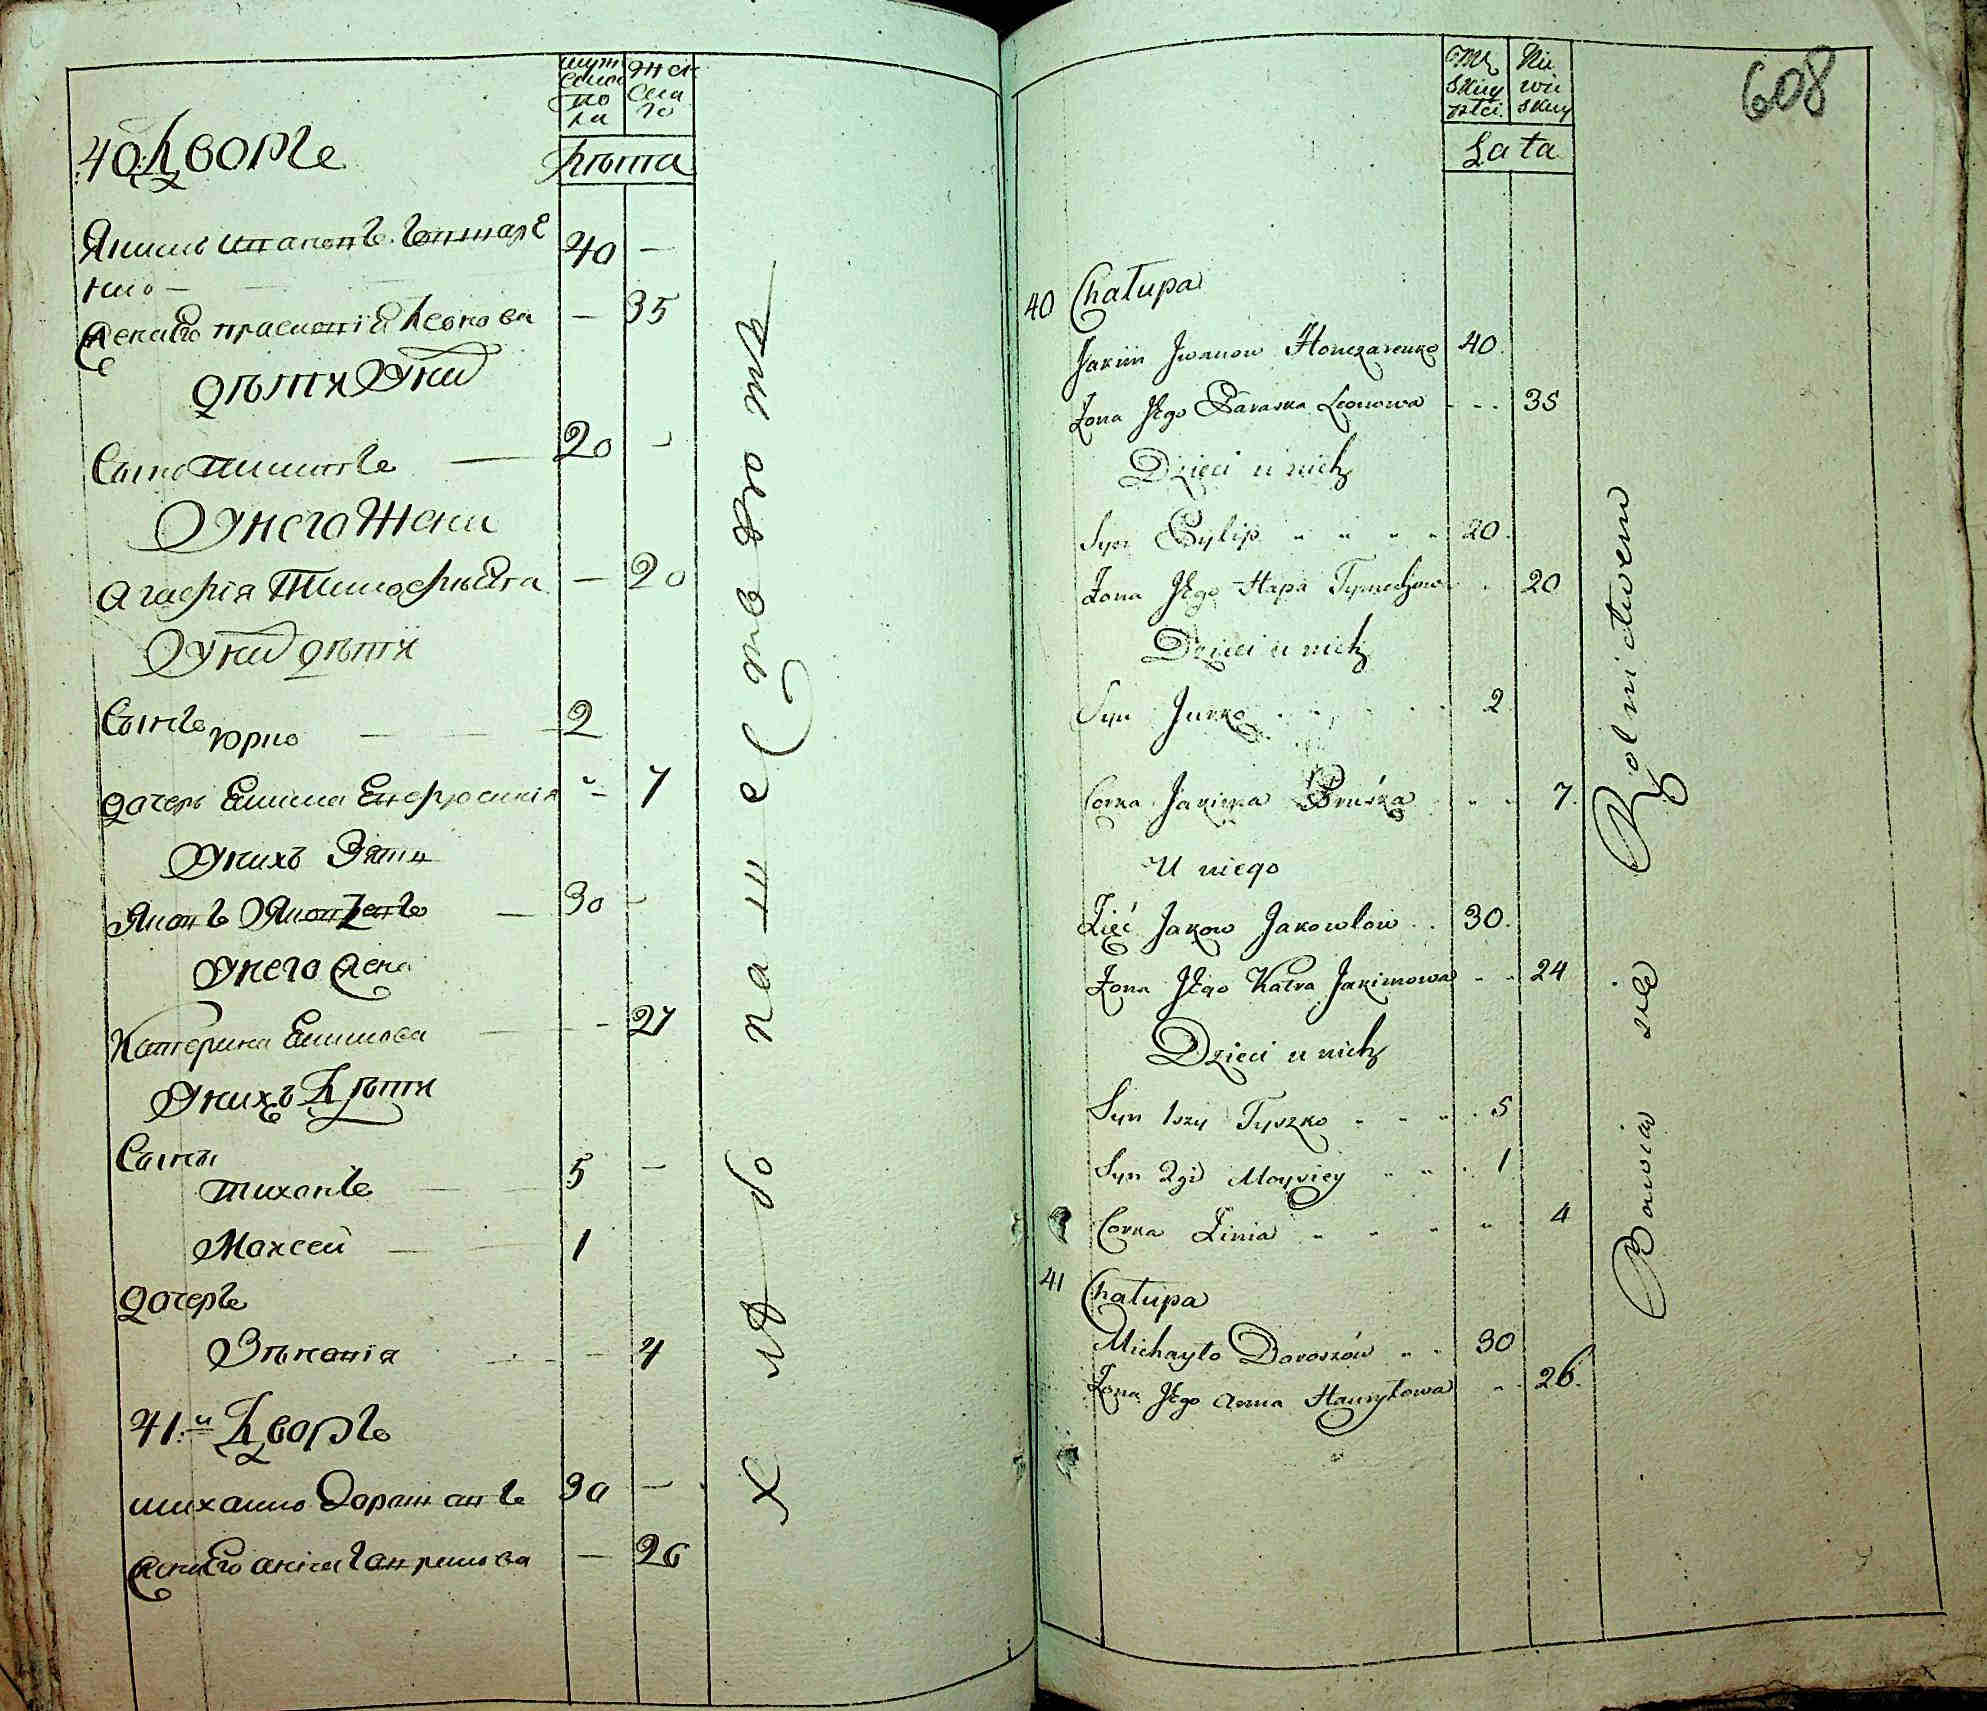 мужеска по ла
женска го
Лѣта
40: Дворъ
Якимъ Ивановъ Гончаре
нко — 40 —
Жена Его Прасковія Леонова — 35
дѣти У них
Сынъ Пилипъ — 20 —
У него Жена
Агафія Тимофѣева — 20
У них дѣти
Сынъ Юрко — 2
дочерь Екима Ефросинія — 7
У нихъ Зять
Яковъ Яковлевъ — 30 —
У него Жена
Катерина Екимова — 27
У нихъ Дѣти
Сыны
Тихонъ — 5 —
Моисей — 1
дочерь
Зѣновія — 4
41:й Дворъ
Михайло Дорошовъ 30 —
Жена Его Анна Гаврилова — 26
Хлѣбопашествомъ
608
męz skiey płci
Nie wie skiey
Lata
40 Chałupa
Jakim Iwanow Honczarenko 40
Żona Jego Paraska Leonowa 35
Dzieci u nich
Syn Pylip 20
Żona Jego Hapa Tymochowa 20
Dzieci u nich
Syn Jurko 2
Corka Jakima Pruśka 7
U niego
Zięć Jakow Jakowlow 30
Żona Jego Katra Jakimowa 24
Dzieci u nich
Syn 1szy Tyszko 5
Syn 2gi Moysiey 1
Corka Zinia 4
41 Chałupa
Michayło Doroszów 30
Żona Jego Anna Hawryłowa 26
Bawią się Rolnictwem